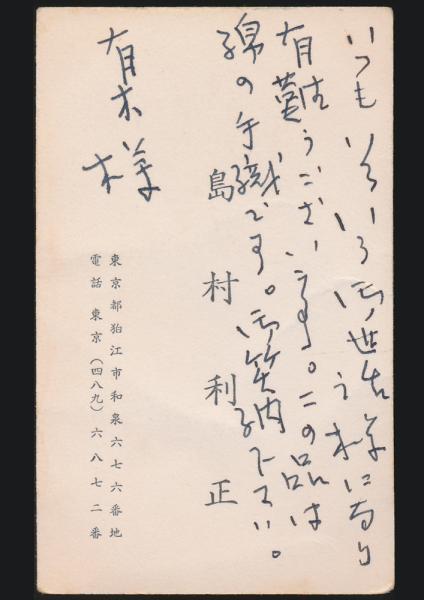 いつもいろいろ御世話様になり
有難うございます。この品は
綿の手織です。御笑納下さい。
島村利正
木様
東京都狛江市和泉六七六番地
電話 東京(四八九)六八七二番